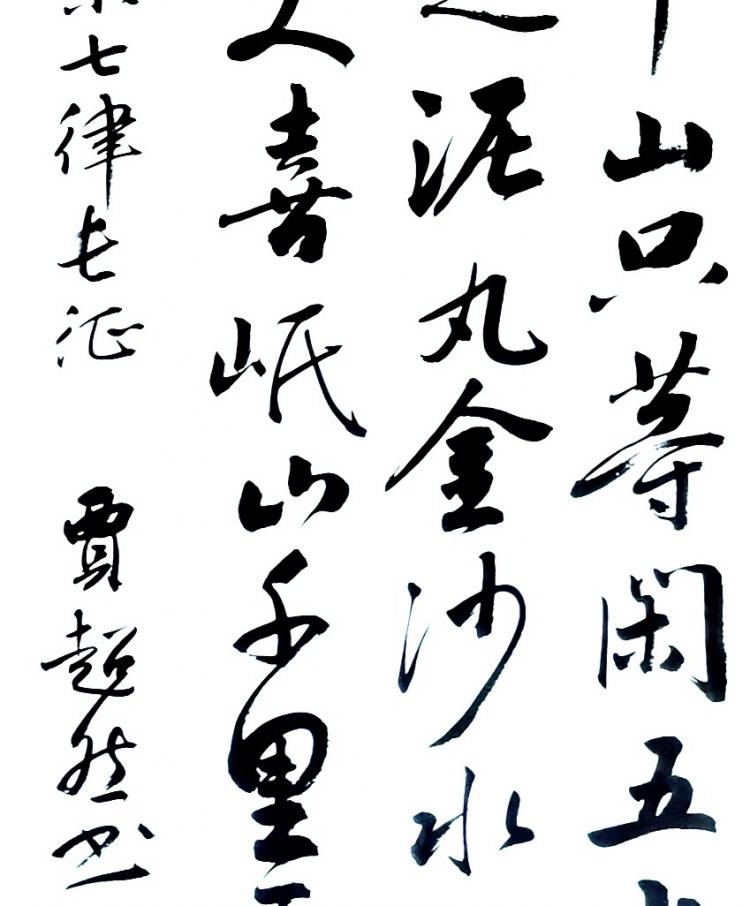 山只等闲五
泥丸金沙水
喜岷山千里
七律长征 贾超然书